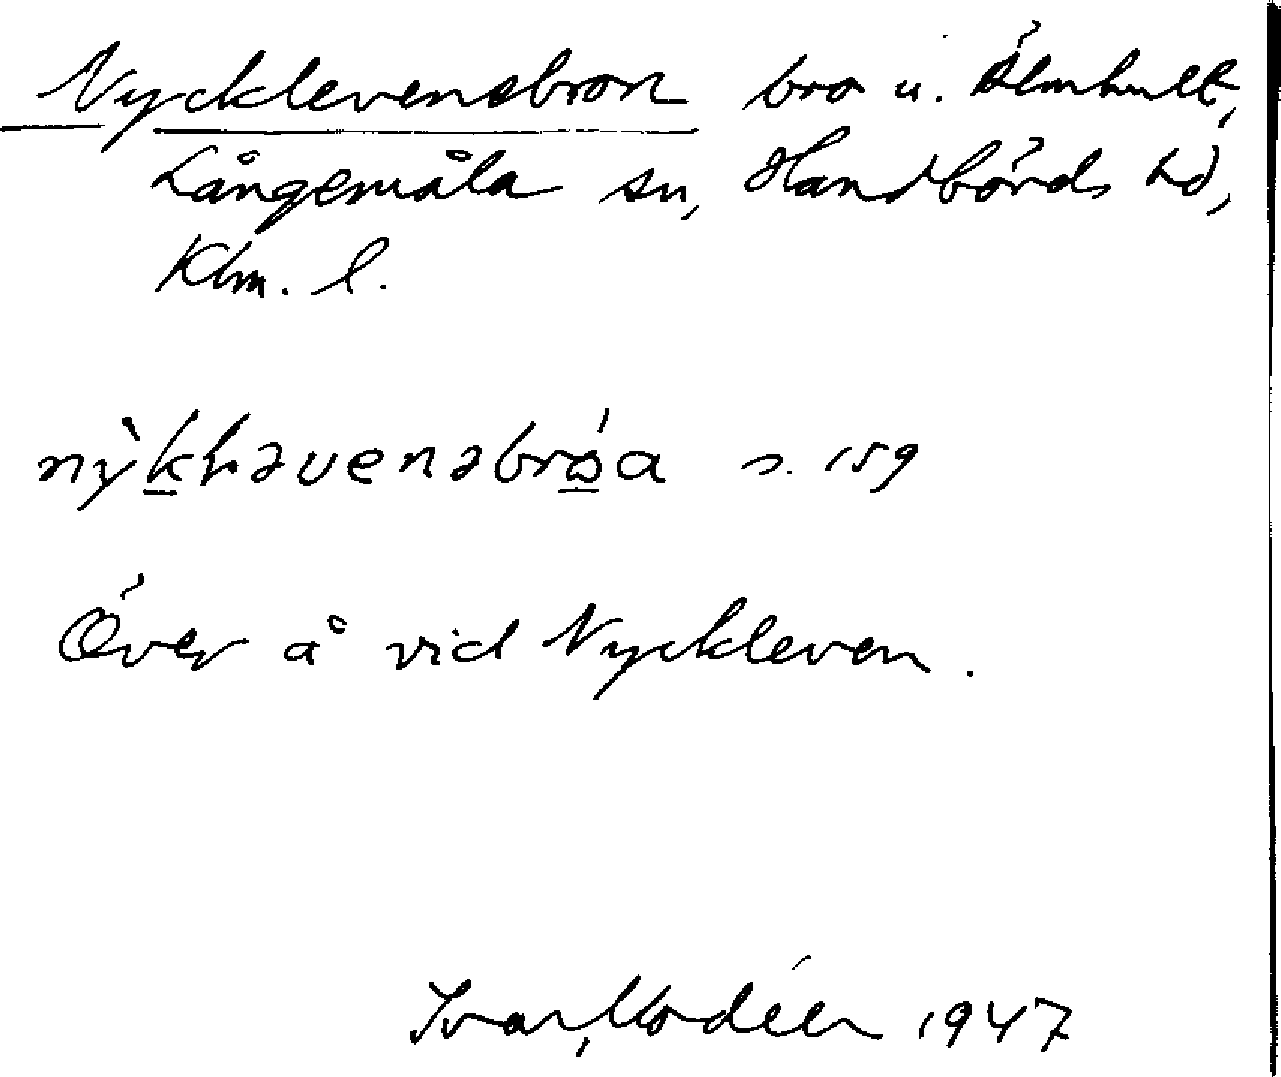 Nycklevensbron bro u. Älmhult,
Långemåla sn, Handbörds hd,
Klm. l.
s. 159
Över å vid Nyckleven.
Ivar Modéer 1947